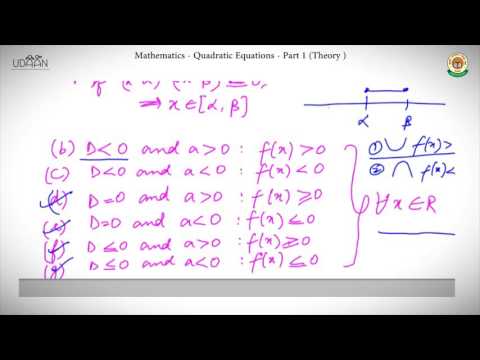 UDAAN
Mathematics - Quadratic Equations - Part 1 (Theory )
⇒ x ∈ [α, β]
α β
(b) D<0 and a>0 : f(x) >0
(c) D<0 and a<0 : f(x) <0
(d) D=0 and a>0 : f(x) ≥0
(e) D=0 and a<0 : f(x) ≤0
(f) D≤0 and a>0 : f(x) ≥0
(g) D≤0 and a<0 : f(x) ≤ 0
① ∪ f(x)>
② ∩ f(x)<
∀ x ∈ R